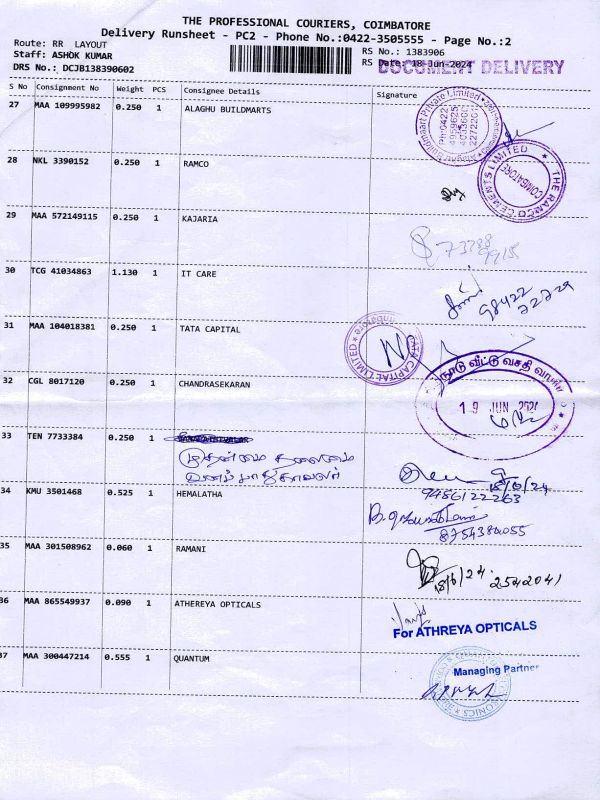 THE PROFESSIONAL COURIERS, COIMBATORE
Delivery Runsheet - PC2 - Phone No.:0422-3505555 - Page No.:2
Route: RR LAYOUT
RS No.: 1383906
Staff: ASHOK KUMAR
RS Date: 18-Jun-2024
DOCUMENT DELIVERY
DRS No.: DCJB138390602
S No Consignment No Weight PCS Consignee Details Signature
27 MAA 109995982 0.250 1 ALAGHU BUILDMARTS
28 NKL 3390152 0.250 1 RAMCO
THE RAMCO CEMENTS LIMITED
COIMBATORE
29 MAA 572149115 0.250 1 KAJARIA
73788
30 TCG 41034863 1.130 1 IT CARE
98422
22729
31 MAA 104018381 0.250 1 TATA CAPITAL
TATA CAPITAL LIMITED
32 CGL 8017120 0.250 1 CHANDRASEKARAN
நாடு வீட்டு வசதி
19 JUN 2024
33 TEN 7733384 0.250 1
முதன்மை தலைமை
வனப் பாதுகாவலர்
18/6/24
9486122263
34 KMU 3501468 0.525 1 HEMALATHA
8754384055
35 MAA 301508962 0.060 1 RAMANI
18/6/24
2542041
36 MAA 865549937 0.090 1 ATHEREYA OPTICALS
For ATHREYA OPTICALS
37 MAA 300447214 0.555 1 QUANTUM
Managing Partner